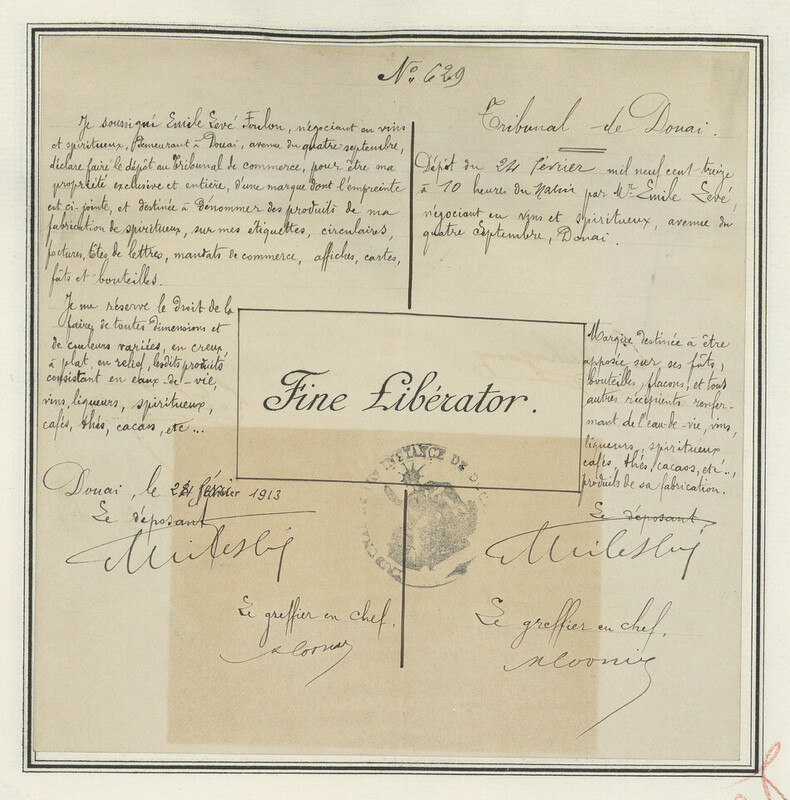 Nº 629
Je soussigné Emile Levé Foulon, négociant en vins
et spiritueux, Demeurant à Douai, avenue du quatre septembre,
déclare faire le dépôt au Tribunal de commerce, pour être ma
propriété exclusive et entière, d'une marque dont l'empreinte
est ci-jointe, et destinée à dénommer des produits de ma
fabrication de spiritueux, sur mes étiquettes, circulaires,
factures, têtes de lettres, mandats de commerce, affiches, cartes,
fûts et bouteilles.
Je me réserve le droit de la
faire de toutes dimensions et
de couleurs variées, en creux,
à plat, en relief, lesdits produits
consistant en eaux-de-vie,
vins, liqueurs, spiritueux,
cafés, thés, cacaos, etc...
Douai, le 24 février 1913
Le déposant
Le greffier en chef.
Tribunal de Douai.
Dépôt du 24 février mil neuf cent treize
à 10 heures du matin par Mr Emile Levé,
négociant en vins et spiritueux, avenue du
quatre Septembre, Douai.
Fine Libérator.
Marque destinée à être
apposée sur ses fûts,
bouteilles, flacons, et tous
autres récipients renfer-
mant de l'eau-de-vie, vins,
liqueurs, spiritueux
cafés, thés, cacaos, etc..,
produits de sa fabrication.
Le déposant,
Le greffier en chef,
INSTANCE DE